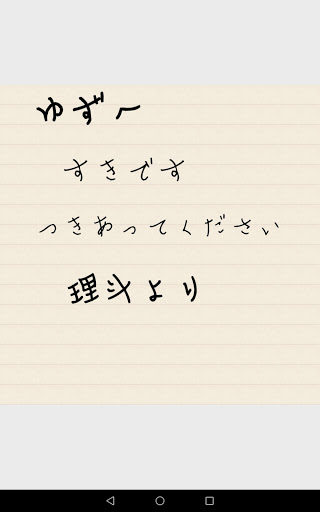 ゆず〜
すきです
つきあってください
理斗より